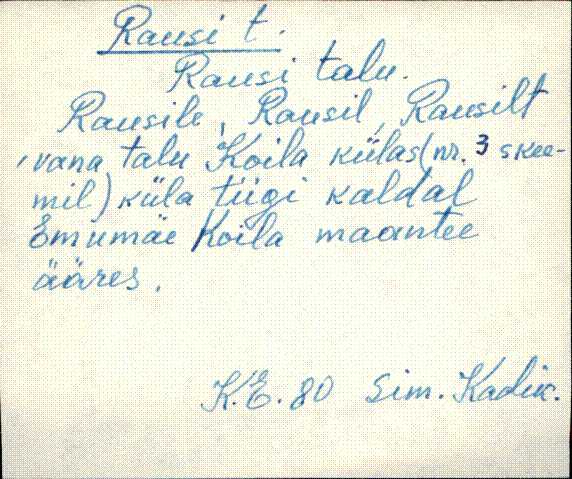 Rausi t.
Rausi talu.
Rausile, Rausil, Rausilt
, vana talu Koila külas (nr. 3 skee-
mil) küla tiigi kaldal
Emumäe Koila maantee
ääres.
K.E. 80 Sim. Kadila.